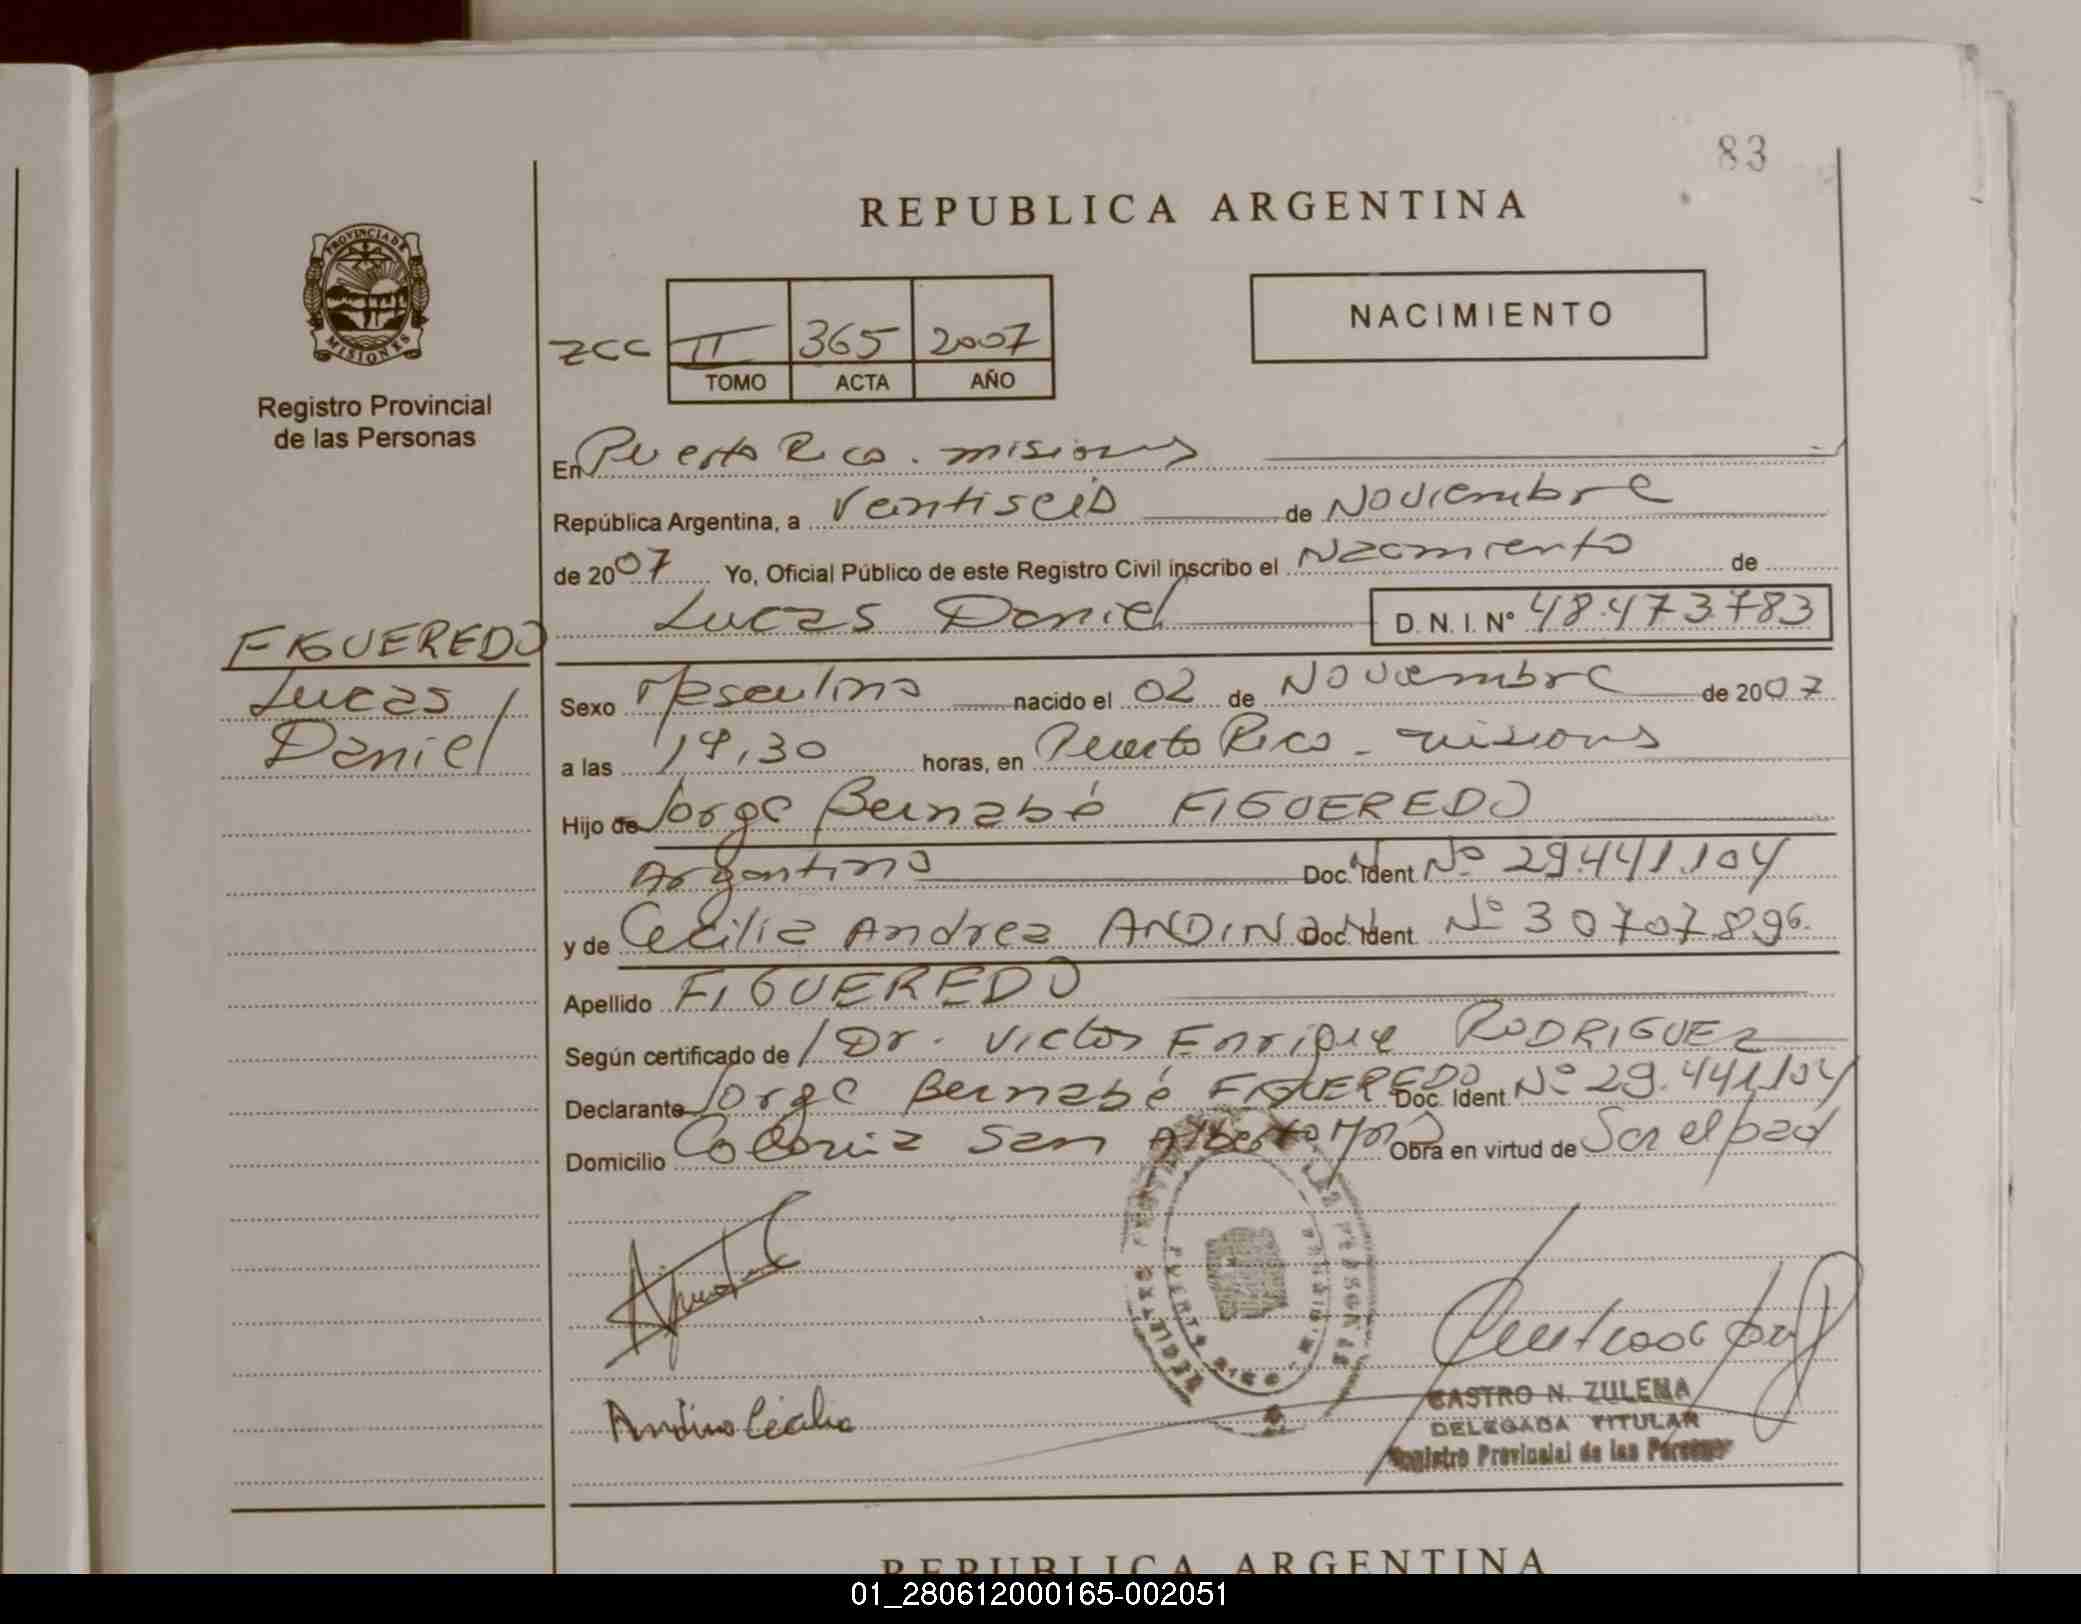 83
REPUBLICA ARGENTINA
PROVINCIA DE
MISIONES
Registro Provincial
de las Personas
NACIMIENTO
ZCC II 365 2007
TOMO ACTA AÑO
En Puerto Rico. misiones
República Argentina, a Veintiseis de Noviembre
de 2007 Yo, Oficial Público de este Registro Civil inscribo el Nacimiento de
Lucas Daniel D.N.I. Nº 48.473.783
FIGUEREDO
Lucas
Daniel
Sexo Masculino nacido el 02 de Noviembre de 2007
a las 19,30 horas, en Puerto Rico - misiones
Hijo de Jorge Bernabé FIGUEREDO
Argentino Doc. Ident. Nº 29.441.104
y de Cecilia Andrea ANDINO Doc. Ident. Nº 30707896.
Apellido FIGUEREDO
Según certificado de Dr. Victor Enrique RODRIGUEZ
Declarante Jorge Bernabé FIGUEREDO Doc. Ident. Nº 29.441.104
Domicilio Colonia San Alberto Obra en virtud de
PUERTO RICO
Andino Cecilia
CASTRO N. ZULEMA
DELEGADA TITULAR
Registro Provincial de las Personas
REPUBLICA ARGENTINA
01_280612000165-002051